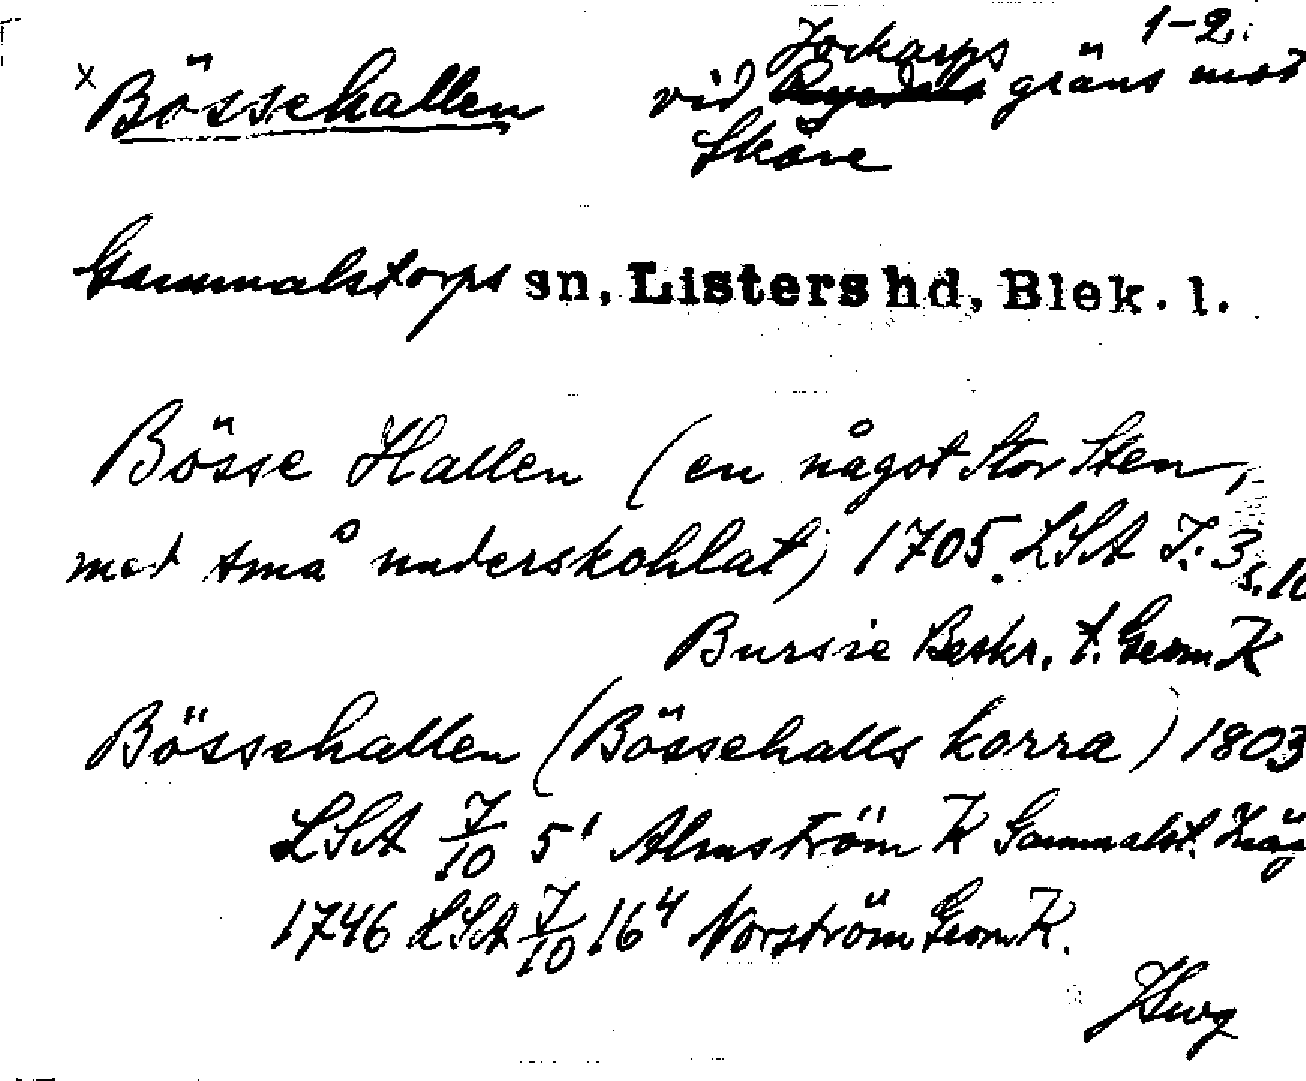 1-2.
x Bössehallen vid Jockarps gräns mot
Skåne
Gammalstorps sn, Listers hd, Blek. l.
Bösse Hallen (en något Stor Sten,
med små underskohlat) 1705. LSA I: 3 s. 10
Bursie Beskr. t. Geom K
Bössehallen (Bössehalls korra) 1803
LSA 7/10 5¹ Almström K Gammalst. Häg
1746 LSA 7/10 16⁴ Norström Geom K.